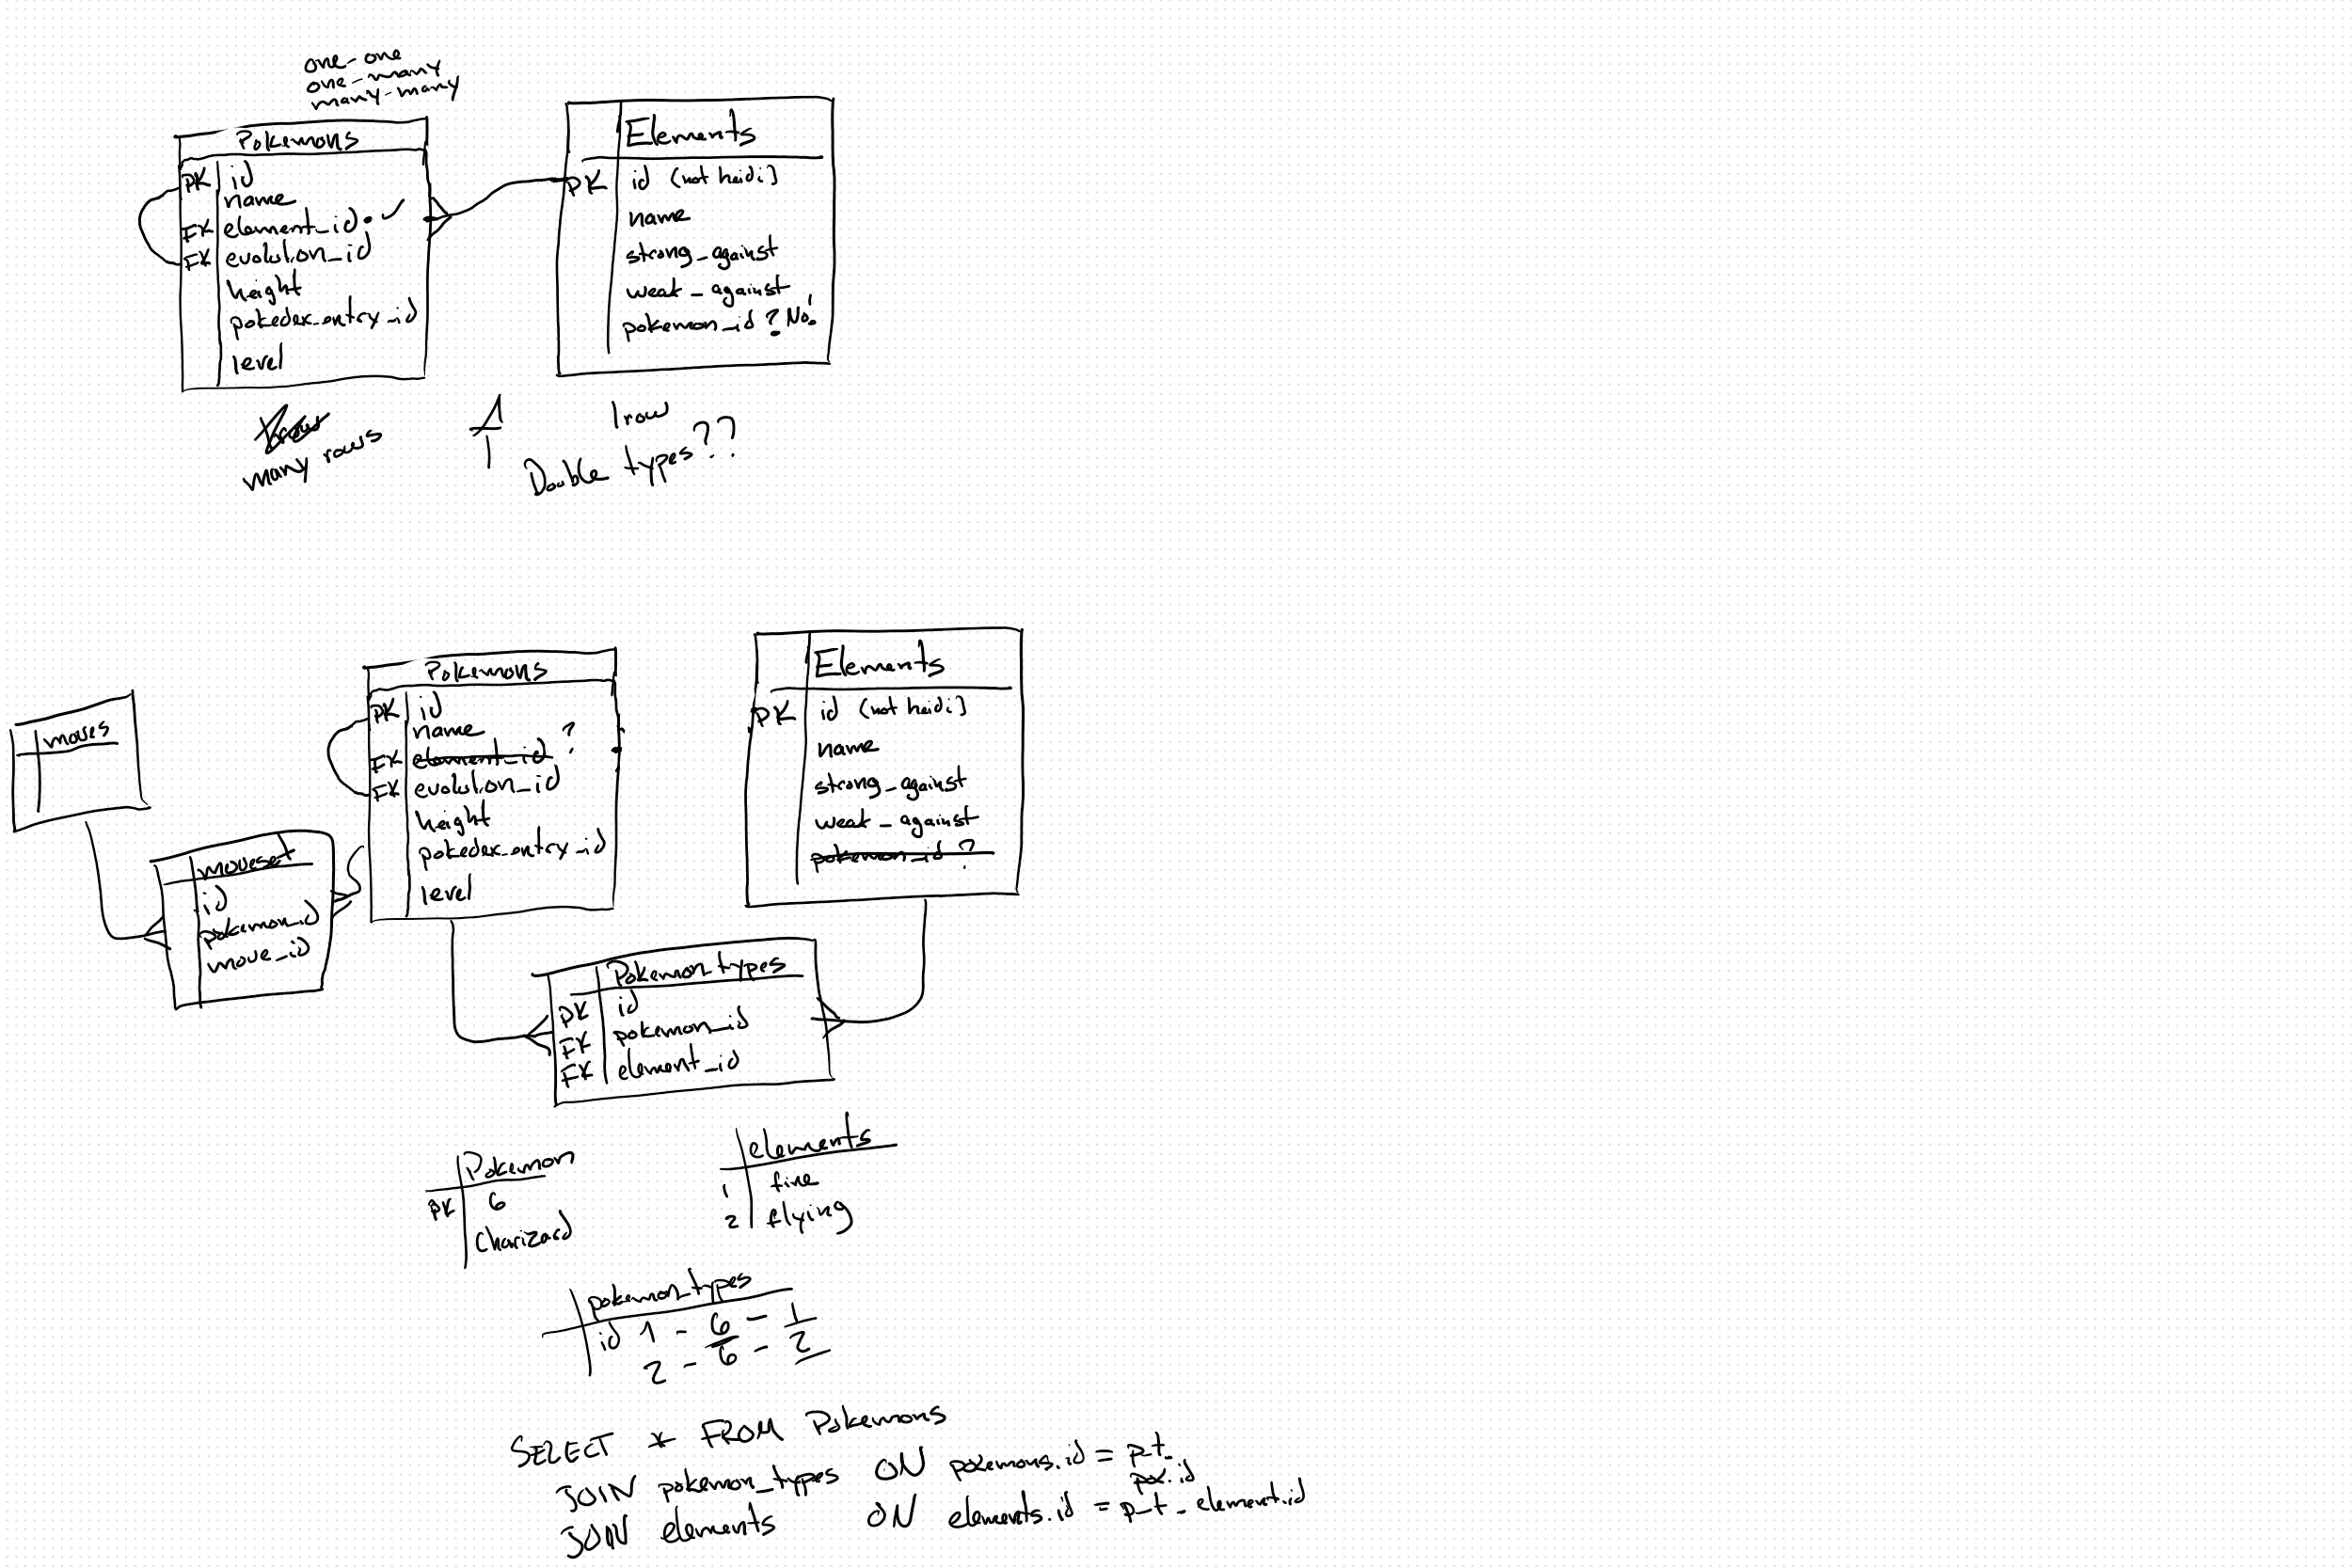 one-one
one-many
many-many
Pokemons
PK id
name
FK element_id ✓
FK evolution_id
height
pokedex_entry_id
level
many rows
Elements
PK id (not heidi)
name
strong_against
weak_against
pokemon_id? No!
1
1 row
Double types??
moves
moveset
id
pokemon_id
move_id
Pokemons
PK id
name
FK element_id ?
FK evolution_id
height
pokedex_entry_id
level
Elements
PK id (not heidi)
name
strong_against
weak_against
pokemon_id ?
Pokemon_types
PK id
FK pokemon_id
FK element_id
Pokemon
PK 6
Charizard
elements
1 fire
2 flying
pokemon_types
id 1 - 6 - 1
2 - 6 - 2
SELECT * FROM Pokemons
JOIN pokemon_types ON pokemons.id = p_t_
pok.id
JOIN elements ON elements.id = p_t_element.id